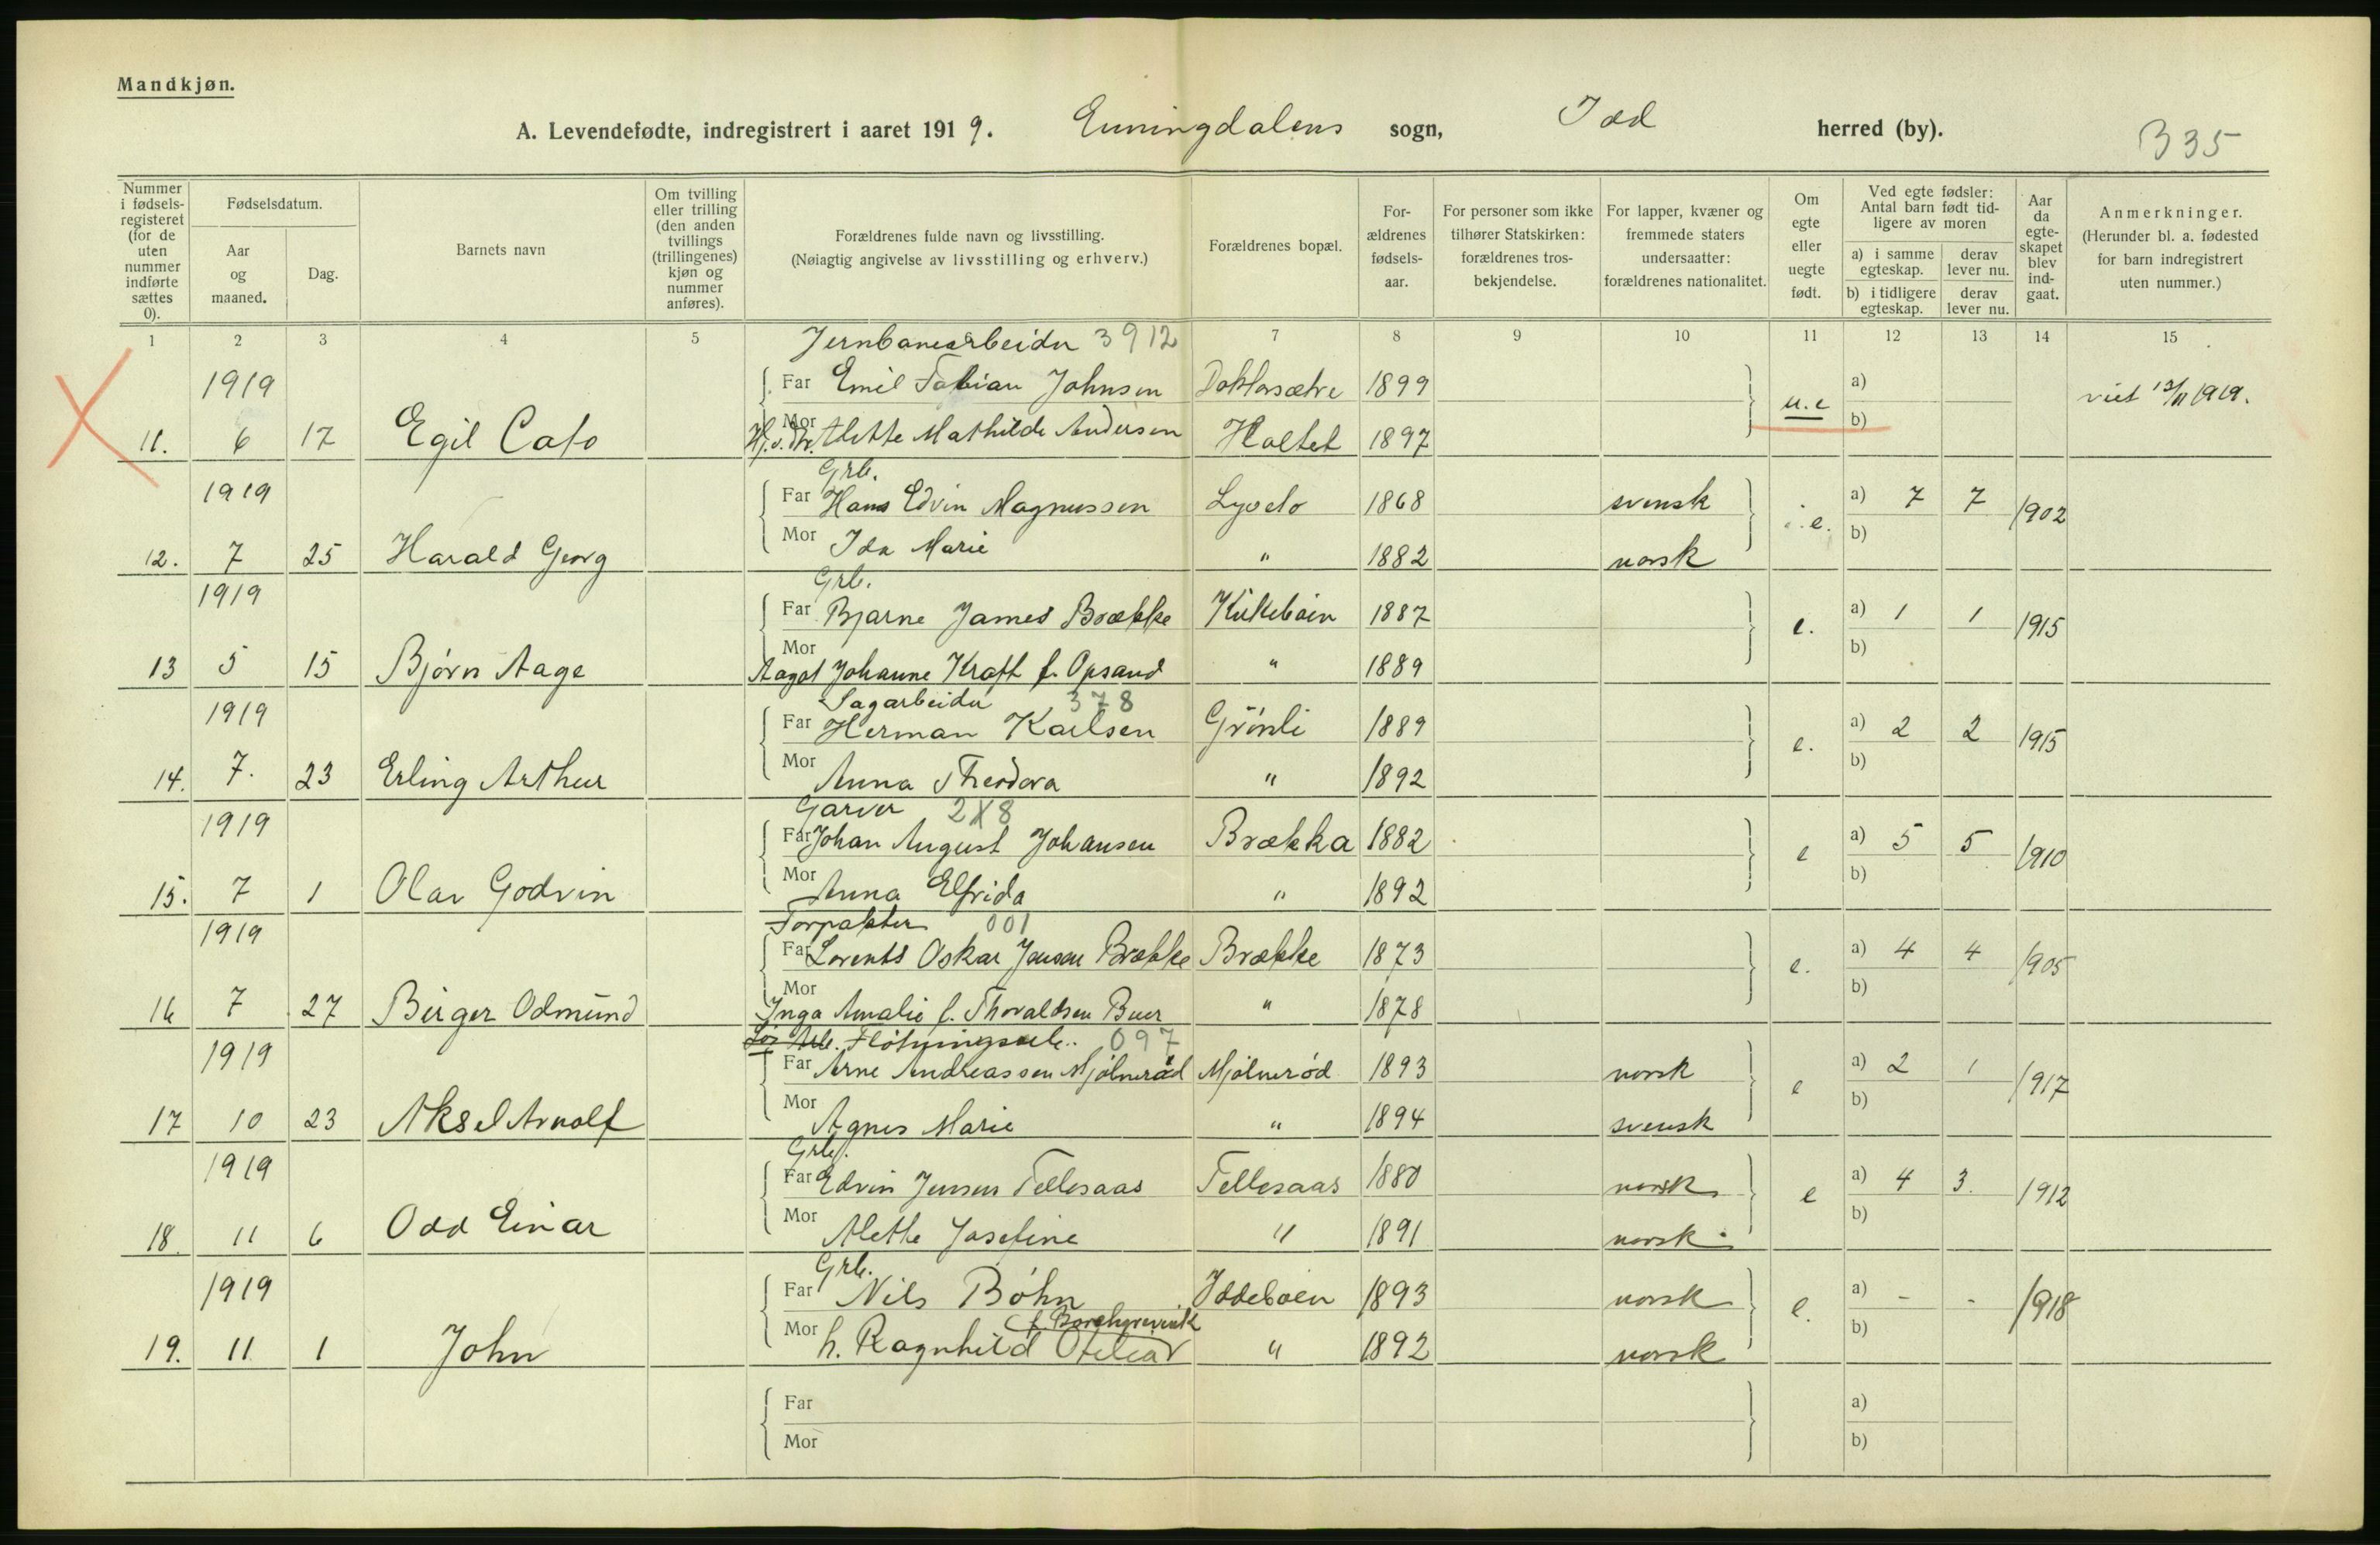 Mandkjøn.
A. Levendefødte, indregistrert i aaret 1919. Enningdalens sogn, Idd herred (by).
B 35
Nummer i fødsels-registeret (for de uten nummer indførte sættes 0).
Fødselsdatum.
Aar og maaned.
Dag.
Barnets navn
Om tvilling eller trilling (den anden tvillings (trillingenes) kjøn og nummer anføres).
Forældrenes fulde navn og livsstilling.
(Nøiagtig angivelse av livsstilling og erhverv.)
Forældrenes bopæl.
For-ældrenes fødsels-aar.
For personer som ikke tilhører Statskirken: forældrenes tros-bekjendelse.
For lapper, kvæner og fremmede staters undersaatter: forældrenes nationalitet.
Om egte eller uegte født.
Ved egte fødsler: Antal barn født tid-ligere av moren
a) i samme egteskap.
derav lever nu.
b) i tidligere egteskap.
derav lever nu.
Aar da egte-skapet blev ind-gaat.
Anmerkninger.
(Herunder bl. a. fødested for barn indregistrert uten nummer.)
1 2 3 4 5 7 8 9 10 11 12 13 14 15
Jernbanearbeider 3912
1919 Far Emil Fabian Johnsen Doktorsætre 1899 a)
11. 6 17 Egil Cato Mor Hj.v. Mr. Alette Mathilde Andersen Holtet 1897 u.e b) viet 13/11 1919.
Grb.
1919 Far Hans Edvin Magnussen 1868 svensk a) 7 7 1902
12. 7 25 Harald Georg Mor Ida Marie " 1882 norsk e. b)
Grb.
1919 Far Bjarne James Brække 1887 a) 1 1 1915
13 5 15 Bjørn Aage Mor Aagot Johanne Kraft f. Opsand " 1889 e. b)
Sagarbeider 378
1919 Far Herman Karlsen Grönli 1889 a) 2 2 1915
14. 7. 23 Erling Arthur Mor Anna Theodora " 1892 e. b)
Garver 2X8
1919 Far Johan August Johansen Brækka 1882 a) 5 5 1910
15. 7 1 Olav Godvin Mor Anna Elfrida " 1892 e b)
Forpakter 001
1919 Far Lorents Oskar Jensen Brække Brække 1873 a) 4 4 1905
16 7 27 Birger Odmund Mor Inga Amalie f. Thoraldsen Buer " 1878 e. b)
Arb. Flötningsarb. 097
1919 Far Arne Andreassen Mjölneröd Mjölneröd 1893 norsk a) 2 1 1917
17 10 23 Aksel Arnolf Mor Agnes Marie " 1894 svensk e b)
Grb.
1919 Far Edvin Jensen Tellesaas Tellesaas 1880 norsk a) 4 3. 1912
18. 11 6 Odd Einar Mor Alette Josefine " 1891 norsk e b)
Grb.
1919 Far Nils Böhn Iddeboen 1893 norsk a) - - 1918
19. 11 1 John Mor h. Ragnhild " 1892 norsk e. b)
Far a)
Mor b)